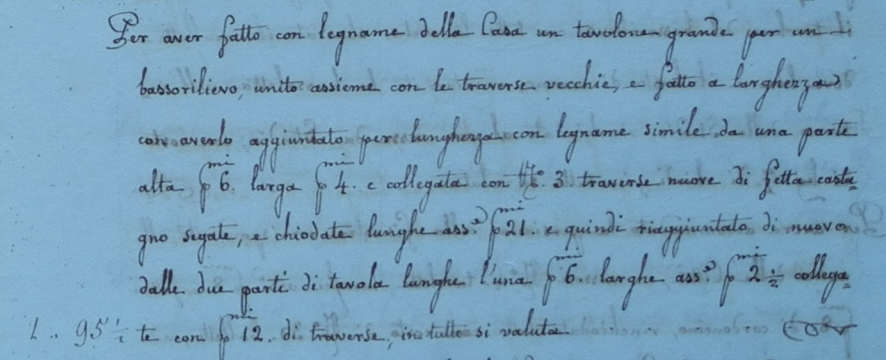 Per aver fatto con legname della Casa un tavolone grande per un
bassorilievo, unito assieme con le traverse vecchie, e fatto a larghezza
con averlo aggiuntato per lunghezza con legname simile da una parte
alta pmi 6. larga pmi 4. e collegata con No. 3 traverse nuove di fetta casta=
gno segate, e chiodate lunghe asse. pmi 21. e quindi riaggiuntato di nuovo
dalle due parti di tavola lunghe l'una pmi 6. larghe asse. pmi 2 1/2 collega=
te con pmi 12. di traverse, in tutto si valuta